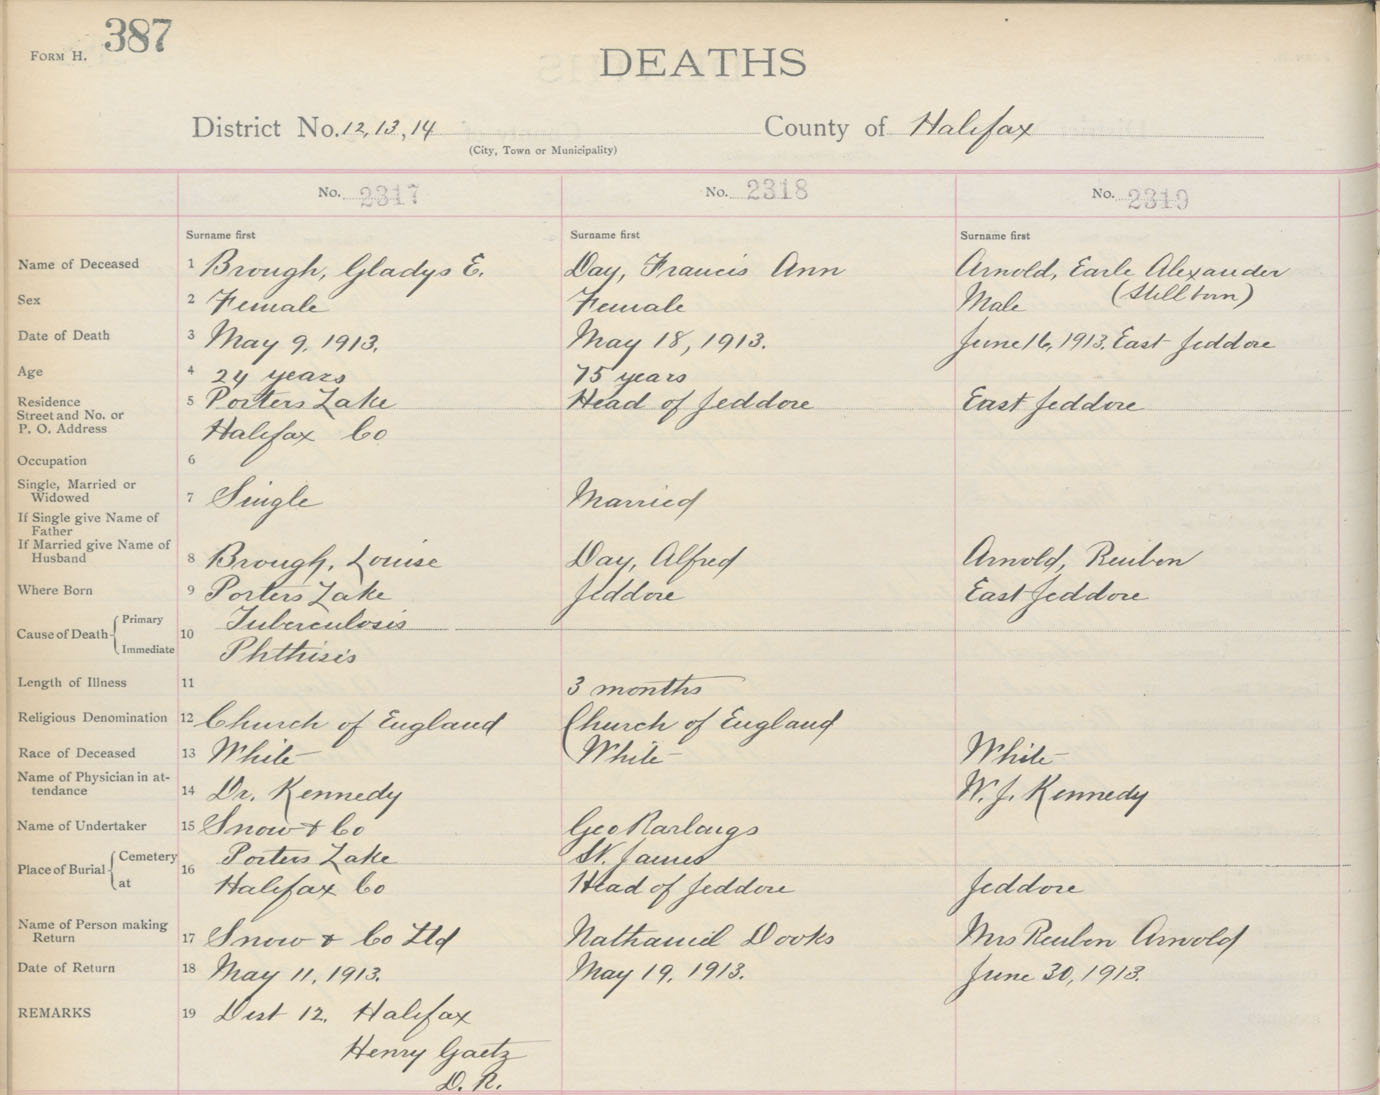 FORM H. 387
DEATHS
District No. 12, 13, 14 County of Halifax
(City, Town or Municipality)
No. 2317 No. 2318 No. 2319
Surname first Surname first Surname first
Name of Deceased 1 Brough, Gladys E. Day, Francis Ann Arnold, Earle Alexander
(Stillborn)
Sex 2 Female Female Male
Date of Death 3 May 9, 1913. May 18, 1913. June 16, 1913. East Jeddore
Age 4 24 years 75 years
Residence 5 Porters Lake Head of Jeddore East Jeddore
Street and No. or
P. O. Address Halifax Co
Occupation 6
Single, Married or
Widowed 7 Single Married
If Single give Name of
Father
If Married give Name of
Husband 8 Brough, Louise Day, Alfred Arnold, Reuben
Where Born 9 Porters Lake Jeddore East Jeddore
Cause of Death Primary 10 Tuberculosis
Immediate Phthisis
Length of Illness 11 3 months
Religious Denomination 12 Church of England Church of England
Race of Deceased 13 White White White
Name of Physician in at-
tendance 14 Dr. Kennedy W. J. Kennedy
Name of Undertaker 15 Snow & Co Geo
Place of Burial Cemetery 16 Porters Lake St. James
at Halifax Co Head of Jeddore Jeddore
Name of Person making
Return 17 Snow & Co Ltd Nathaniel Dooks Mrs Reuben Arnold
Date of Return 18 May 11, 1913. May 19, 1913. June 30, 1913.
REMARKS 19 Dist 12, Halifax
Henry Gaetz
D. R.